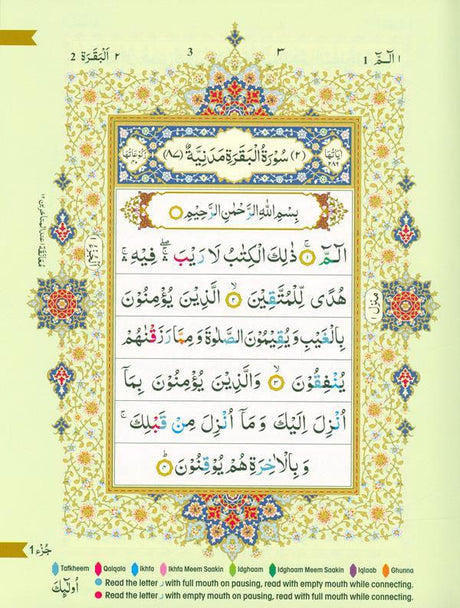 2 اَلْبَقَرَة ٢
3 ٣
1 الٓمّٓ ١
اٰيَاتُهَا ٢٨٦
(٢) سُوْرَةُ الْبَقَرَةِ مَدَنِيَّةٌ (٨٧)
رُكُوْعَاتُهَا ٤٠
بِسْمِ اللّٰهِ الرَّحْمٰنِ الرَّحِيْمِ
الٓمّٓ ١ ذٰلِكَ الْكِتٰبُ لَا رَيْبَ ۛۖ فِيْهِ ۛ
هُدًى لِّلْمُتَّقِيْنَ ٢ الَّذِيْنَ يُؤْمِنُوْنَ
بِالْغَيْبِ وَيُقِيْمُوْنَ الصَّلٰوةَ وَمِمَّا رَزَقْنٰهُمْ
يُنْفِقُوْنَ ٣ وَالَّذِيْنَ يُؤْمِنُوْنَ بِمَآ
اُنْزِلَ اِلَيْكَ وَمَآ اُنْزِلَ مِنْ قَبْلِكَ ۚ
وَبِالْاٰخِرَةِ هُمْ يُوْقِنُوْنَ ٤
اَلْجُزْءُ ١
مَنْزِل ١
1 جُزْء ١
Tafkheem Qalqala Ikhfa Ikhfa Meem Saakin Idghaam Idghaam Meem Saakin Iqlaab Ghunna
Read the letter ر with full mouth on pausing, read with empty mouth while connecting.
Read the letter ر with empty mouth on pausing, read with full mouth while connecting.
اُولٰٓئِكَ